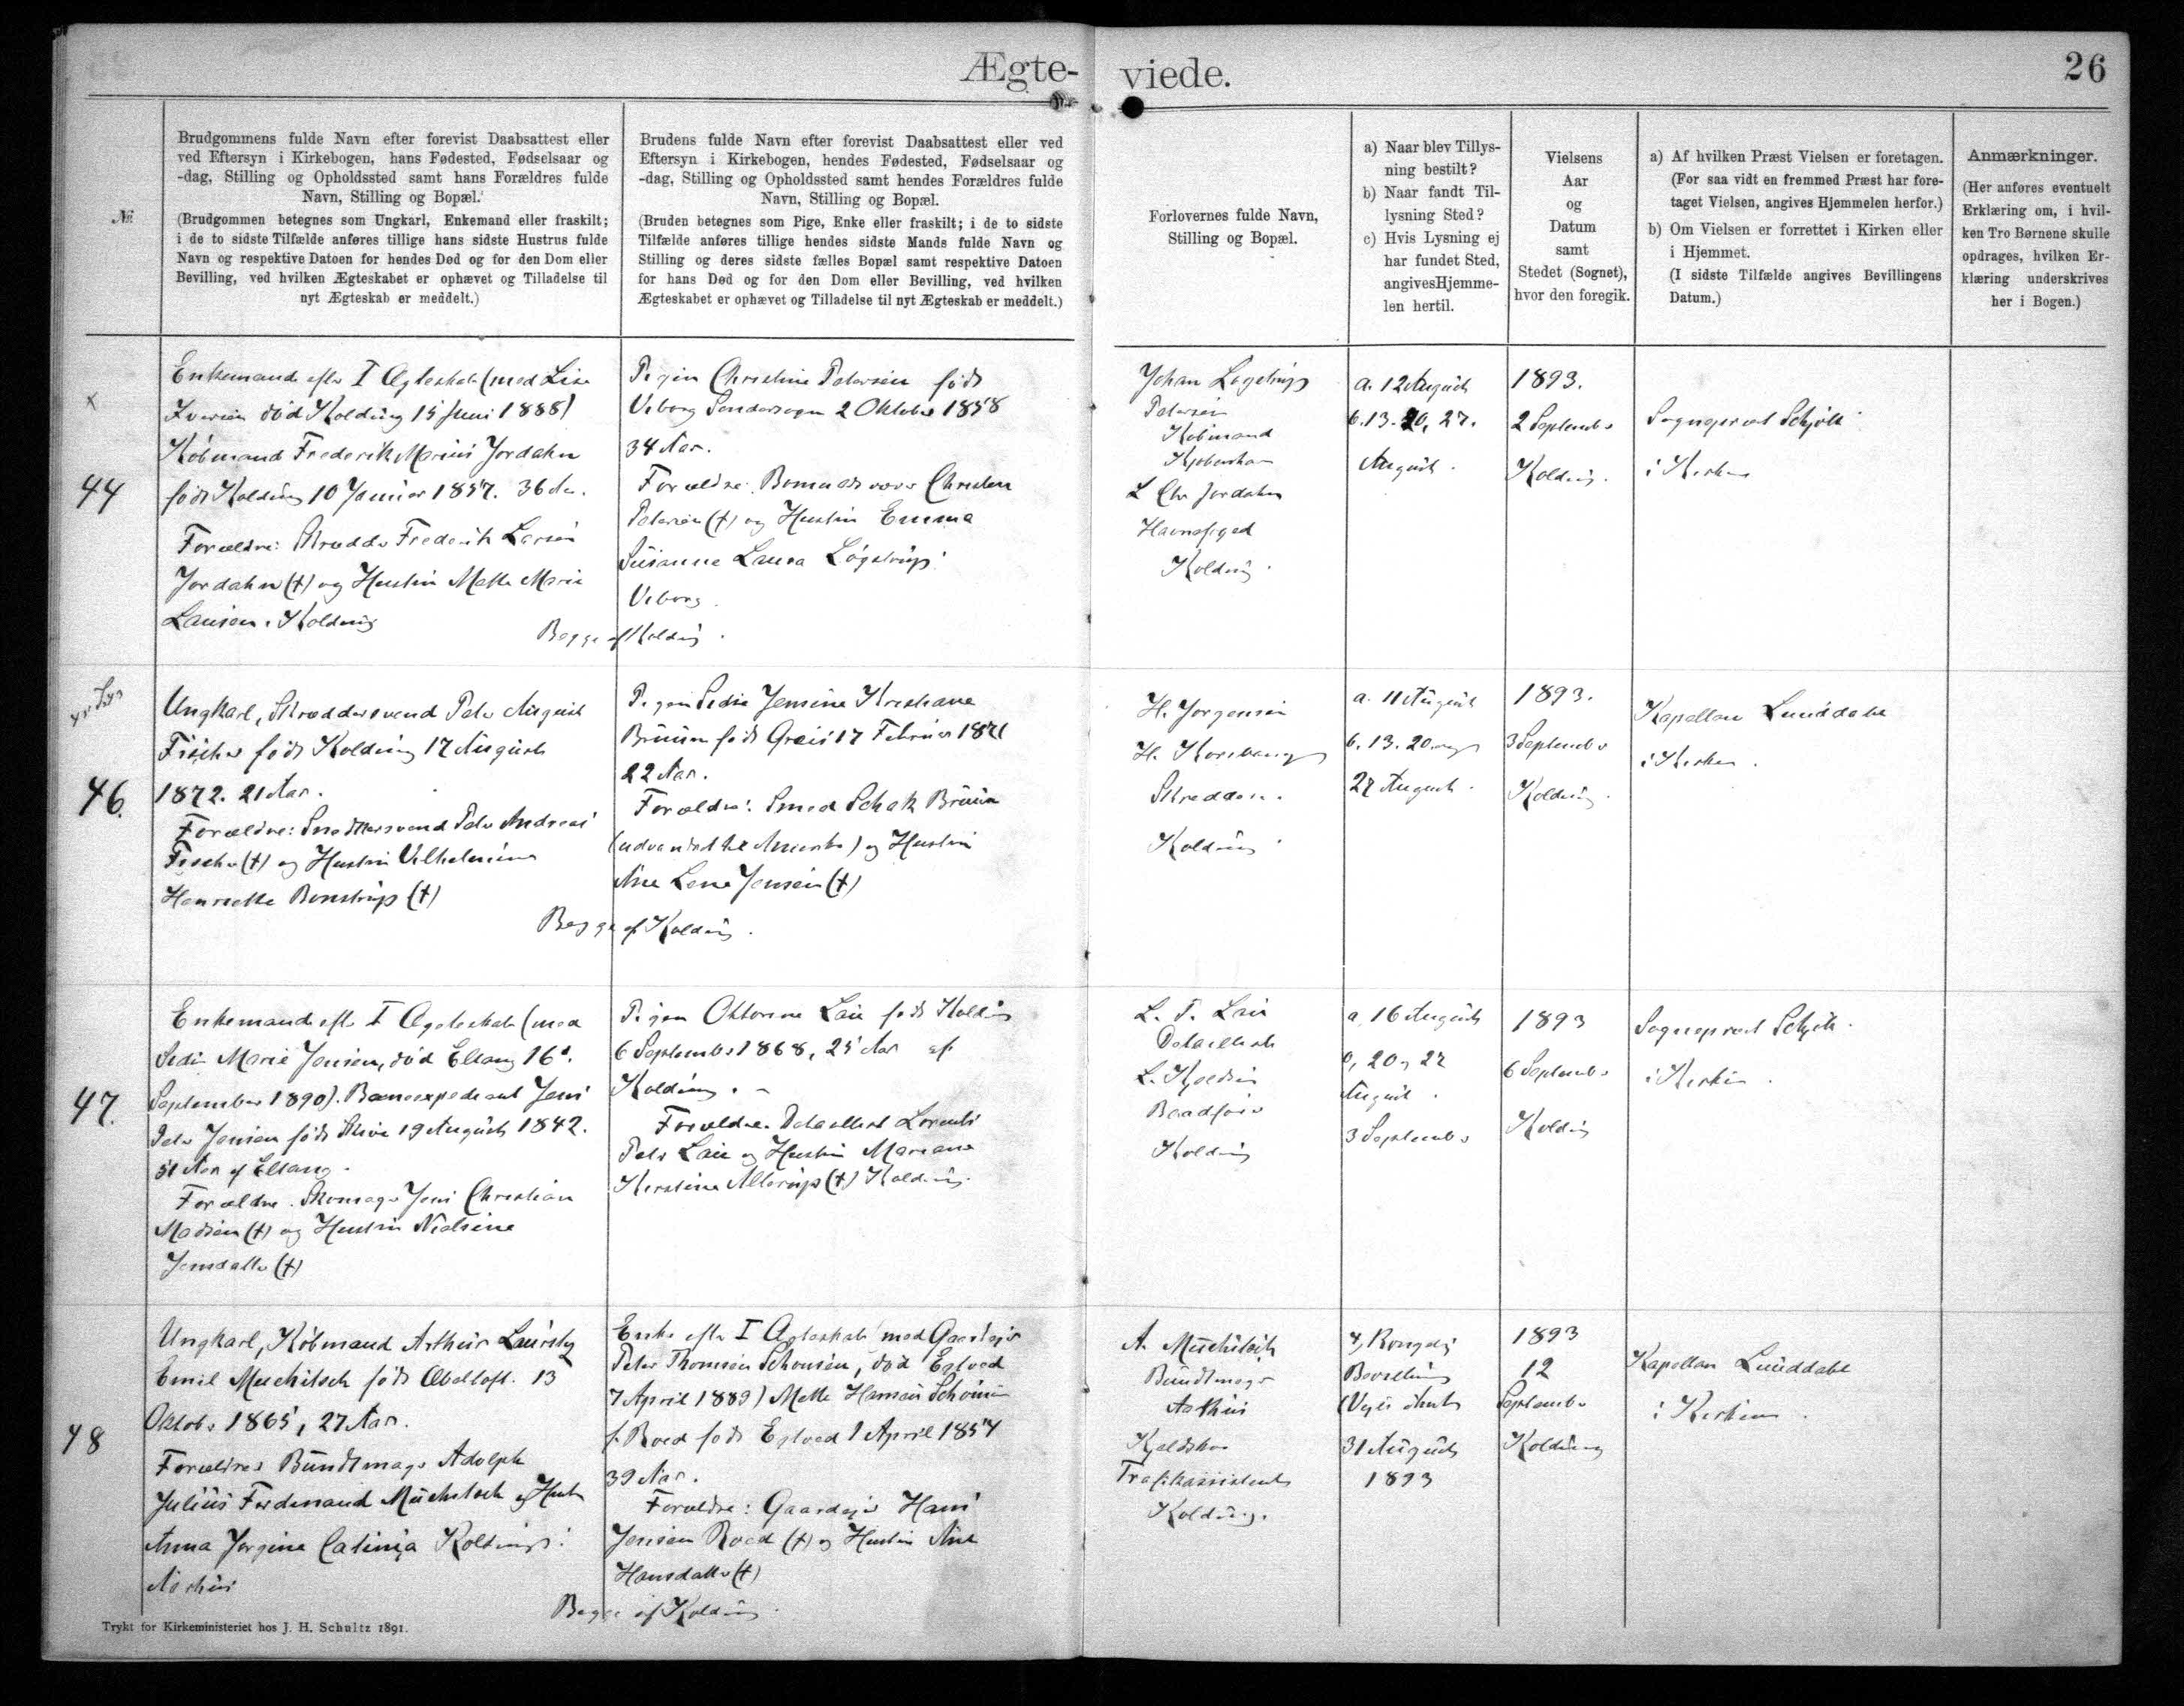 Ægte-
viede.
26
№
Brudgommens fulde Navn efter forevist Daabsattest eller
ved Eftersyn i Kirkebogen, hans Fødested, Fødselsaar og
-dag, Stilling og Opholdssted samt hans Forældres fulde
Navn, Stilling og Bopæl.
(Brudgommen betegnes som Ungkarl, Enkemand eller fraskilt;
i de to sidste Tilfælde anføres tillige hans sidste Hustrus fulde
Navn og respektive Datoen for hendes Død og for den Dom eller
Bevilling, ved hvilken Ægteskabet er ophævet og Tilladelse til
nyt Ægteskab er meddelt.)
Brudens fulde Navn efter forevist Daabsattest eller ved
Eftersyn i Kirkebogen, hendes Fødested, Fødselsaar og
-dag, Stilling og Opholdssted samt hendes Forældres fulde
Navn, Stilling og Bopæl.
(Bruden betegnes som Pige, Enke eller fraskilt; i de to sidste
Tilfælde anføres tillige hendes sidste Mands fulde Navn og
Stilling og deres sidste fælles Bopæl samt respektive Datoen
for hans Død og for den Dom eller Bevilling, ved hvilken
Ægteskabet er ophævet og Tilladelse til nyt Ægteskab er meddelt.)
Forlovernes fulde Navn,
Stilling og Bopæl.
a) Naar blev Tillys-
ning bestilt?
b) Naar fandt Til-
lysning Sted?
c) Hvis Lysning ej
har fundet Sted,
angives Hjemme-
len hertil.
Vielsens
Aar
og
Datum
samt
Stedet (Sognet),
hvor den foregik.
a) Af hvilken Præst Vielsen er foretagen.
(For saa vidt en fremmed Præst har fore-
taget Vielsen, angives Hjemmelen herfor.)
b) Om Vielsen er forrettet i Kirken eller
i Hjemmet.
(I sidste Tilfælde angives Bevillingens
Datum.)
Anmærkninger.
(Her anføres eventuelt
Erklæring om, i hvil-
ken Tro Børnene skulle
opdrages, hvilken Er-
klæring underskrives
her i Bogen.)
x
44
Enkemand efter I Ægteskab (med Lise
Iversen død Kolding 15 Juni 1888)
Købmand Frederik Marius Jordahn
født Kolding 10 Januar 1857. 36 Aar.
Forældre: Skrædder Frederik Larsen
Jordahn (†) og Hustru Mette Marie
Lausen. Kolding
Pigen Christine Petersen født
Viborg Søndersogn 2 Oktober 1858
34 Aar.
Forældre: Bomuldsvæver Christen
Petersen (†) og Hustru Emma
Susanne Laura Løgstrup
Viborg.
Begge af Kolding.
Johan Løgstrup
Petersen
Købmand
Kjøbenhavn
L Chr Jordahn
Havnefoged
Kolding.
a. 12 August
b. 13. 20, 27.
August.
1893.
2 September
Kolding.
Sognepræst Schjøtt
i Kirken
46.
Ungkarl, Skræddersvend Peter August
Fischer født Kolding 17 August
1872. 21 Aar.
Forældre: Snedkersvend Peter Andreas
Fischer (†) og Hustru Vilhelmine
Henriette Bonstrup (†)
Pigen Sidse Jensine Kristiane
Bruun født Greis 17 Februar 1871
22 Aar.
Forældre: Smed Schak Bruun
(udvandret til Amerika) og Hustru
Ane Lene Jensen (†)
Begge af Kolding.
H. Jørgensen
H. Korsbæng
Skræddere.
Kolding
a. 11 August
b. 13. 20. og
27 August.
1893.
3 September
Kolding.
Kapellan Lunddahl
i Kirken.
47.
Enkemand efter I Ægteskab (med
Sidse Marie Jensen, død Eltang 16.
September 1890). Baneexpedient Jens
Peter Jensen født Skive 19 August 1842.
51 Aar af Eltang.
Forældre. Skomager Jens Christian
Madsen (†) og Hustru Nielsine
Jensdatter (†)
Pigen Oktovine Lau født Kolding
6 September 1868, 25 Aar af
Kolding.
Forældre. Detaillist Lorents
Peter Lau og Hustru Mariane
Kirstine Allerup (†) Kolding.
L. P. Lau
Detaillist
L. Kjeldsen
Brandfoged
Kolding
a, 16 August
b, 20, 27
August.
3 September
1893
6 September
Kolding
Sognepræst Schjøtt.
i Kirken.
48
Ungkarl, Købmand Arthur Lauritz
Emil Muchitsch født Ebeltoft. 13
Oktober 1865, 27 Aar.
Forældres Bundtmager Adolph
Julius Ferdinand Muchitsch og Hustru
Anna Jørgine Catinja Koldings.
Aarhus
Enke efter I Ægteskab (med Gaardejer
Peter Thomsen Schousen, død Egtved
7 April 1889) Mette Hansen Schousen
f. Roed født Egtved 1 April 1854
39 Aar.
Forældre: Gaardejer Hans
Jensen Roed (†) og Hustru Ane
Hansdatter (†)
Begge af Kolding.
A. Muchitsch
Bundtmager
Aarhus
Kjeldskov
Trafikassistent
Kolding.
Kongelig
Bevilling
(Vejle Amt
31 August
1893
1893
12
September
Kolding
Kapellan Lunddahl
i Kirken.
Trykt for Kirkeministeriet hos J. H. Schultz 1891.